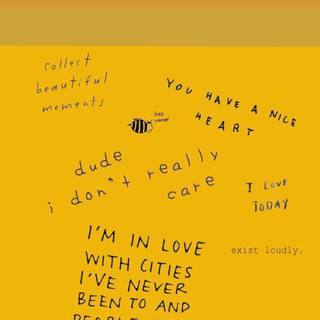 collect
beautiful
moments
YOU HAVE A NICE
HEART
bee
dude
i don't really
care
I LOVE
TODAY
I'M IN LOVE
WITH CITIES
I'VE NEVER
BEEN TO AND
PEOPLE
exist loudly.